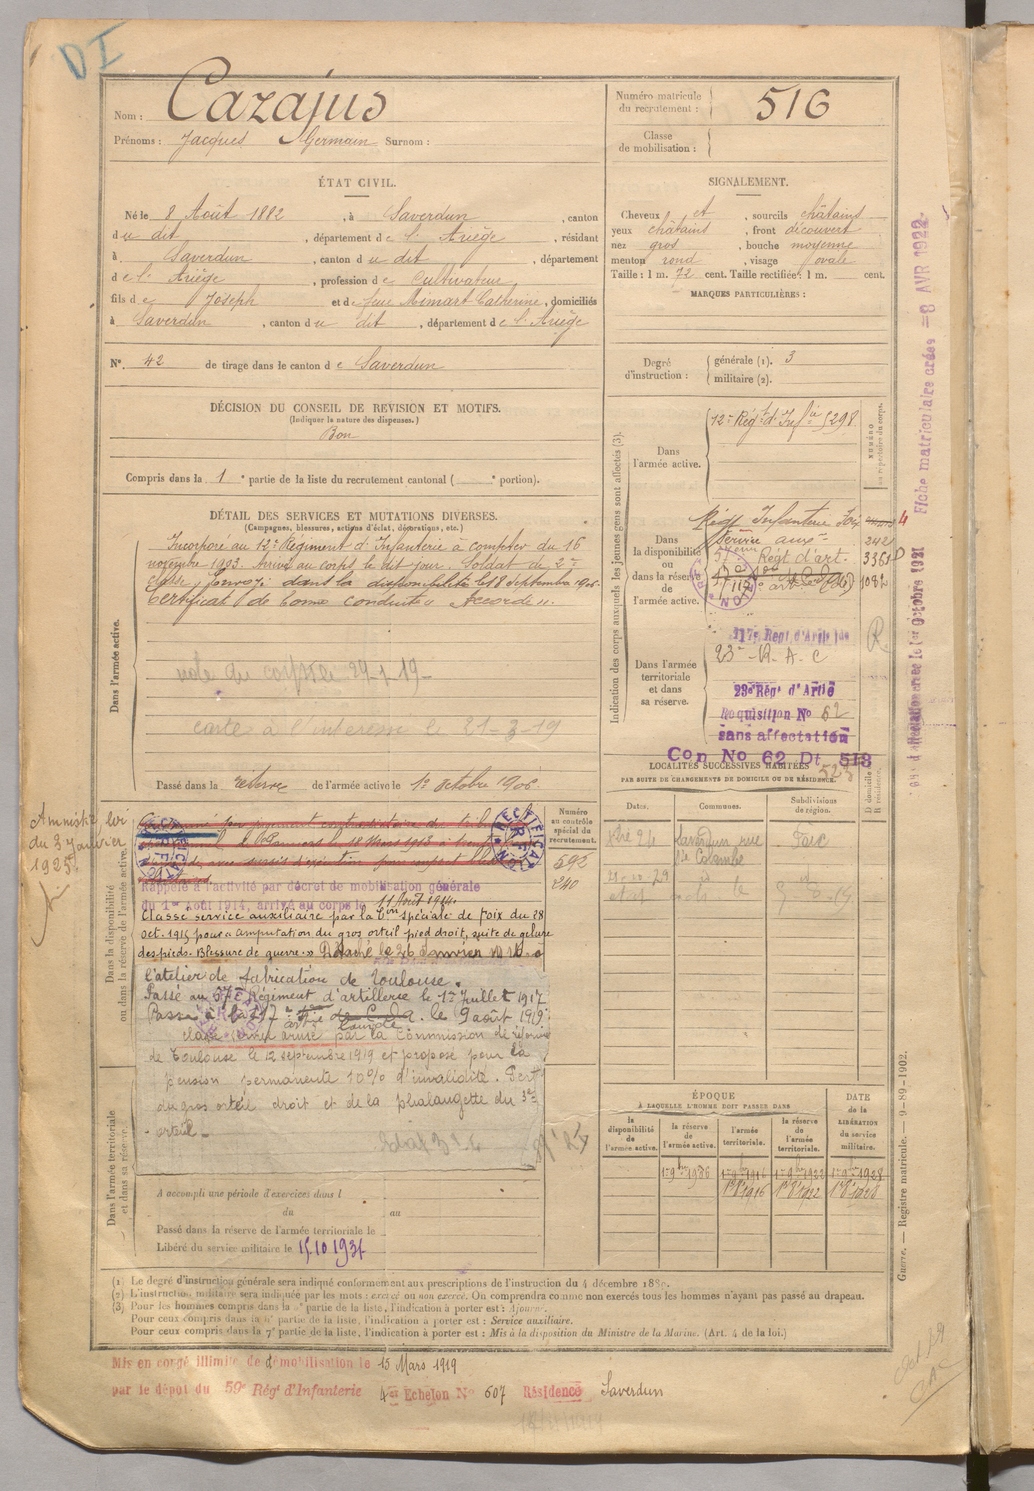 DI
Nom : Cazajus
Prénoms : Jacques Germain Surnom :
Numéro matricule du recrutement : 516
Classe de mobilisation :
ÉTAT CIVIL.
Né le 8 Août 1882, à Saverdun, canton
du dit, département de l'Ariège, résidant
à Saverdun, canton du dit, département
de l'Ariège, profession de Cultivateur,
fils de Joseph et de feue Mimart Catherine, domiciliés
à Saverdun, canton du dit, département de l'Ariège
N° 42 de tirage dans le canton de Saverdun
SIGNALEMENT.
Cheveux et, sourcils châtains
yeux châtains, front découvert
nez gros, bouche moyenne
menton rond, visage ovale
Taille : 1 m. 72 cent. Taille rectifiée : 1 m. cent.
MARQUES PARTICULIÈRES :
Degré d'instruction : générale (1). 3
militaire (2).
DÉCISION DU CONSEIL DE REVISION ET MOTIFS.
(Indiquer la nature des dispenses.)
Bon
Compris dans la 1e partie de la liste du recrutement cantonal ( e portion).
DÉTAIL DES SERVICES ET MUTATIONS DIVERSES.
(Campagnes, blessures, actions d'éclat, décorations, etc.)
Dans l'armée active.
Incorporé au 12e Régiment d'Infanterie à compter du 16
novembre 1903. Arrivé au corps le dit jour. Soldat de 2e
classe. Envoyé dans la disponibilité le 18 Septembre 1906.
Certificat de bonne conduite "Accordé".
carte à l'intéressé le 21-3-19
Passé dans la réserve de l'armée active le 1er octobre 1906
Indication des corps auxquels les jeunes gens sont affectés (3).
NUMÉRO au répertoire du corps.
Dans l'armée active.
12e Régt d'Infie 5298
Dans la disponibilité ou dans la réserve de l'armée active.
Régt Infanterie Foix
Service auxre
242
57eme Régt d'art. 3361
1082
Dans l'armée territoriale et dans sa réserve.
117e Régt d'Artie lde
23e R.A.C
23e Régt d'Artie
Requisition No 62
sans affectation
Con No 62 Dt 513
523
R
Fiche matriculaire créée = 8 AVR 1922
LOCALITÉS SUCCESSIVES HABITÉES
PAR SUITE DE CHANGEMENTS DE DOMICILE OU DE RÉSIDENCE.
D domicile R résidence.
Dates. Communes. Subdivisions de région.
Saverdun rue Foix
Ste Colombe
Dans la disponibilité ou dans la réserve de l'armée active.
Amnistié loi
du 3 janvier
1925
RECTIFICATION R.F.
Numéro au contrôle spécial du recrutement.
592
240
Rappelé à l'activité par décret de mobilisation générale
du 1er août 1914, arrivé au corps le 11 Août 1914.
Classé service auxiliaire par la Con spéciale de Foix du 28
oct. 1915 pour "amputation du gros orteil pied droit, suite de gelure
des pieds. Blessure de guerre." Détaché le 26 janvier 1916 à
l'atelier de fabrication de Toulouse.
Passé au 57e Régiment d'artillerie le 1er Juillet 1917
Passé à la 117e artie lourde le 9 août 1919
classé service armé par la Commission de réforme
de Toulouse le 12 septembre 1919 et proposé pour la
pension permanente 10% d'invalidité. Perte
du gros orteil droit et de la phalangette du 3e
orteil.
Dans l'armée territoriale et dans sa réserve.
A accompli une période d'exercices dans l
du au
Passé dans la réserve de l'armée territoriale le
Libéré du service militaire le 15.10 1931
ÉPOQUE
À LAQUELLE L'HOMME DOIT PASSER DANS
la disponibilité de l'armée active. la réserve de l'armée active. l'armée territoriale. la réserve de l'armée territoriale. DATE de la LIBÉRATION du service militaire.
1er 9bre 1906 1er 9bre 1916 1er 9bre 1922 1er 9bre 1928
1er 8bre 1916 1er 8bre 1922 1er 8bre 1928
Guerre. — Registre matricule. — 9-89-1902.
(1) Le degré d'instruction générale sera indiqué conformément aux prescriptions de l'instruction du 4 décembre 1889.
(2) L'instruction militaire sera indiquée par les mots : exercé ou non exercé. On comprendra comme non exercés tous les hommes n'ayant pas passé au drapeau.
(3) Pour les hommes compris dans la 2e partie de la liste, l'indication à porter est : Ajourné.
Pour ceux compris dans la 4e partie de la liste, l'indication à porter est : Service auxiliaire.
Pour ceux compris dans la 7e partie de la liste, l'indication à porter est : Mis à la disposition du Ministre de la Marine. (Art. 4 de la loi.)
Mis en congé illimité de démobilisation le 15 Mars 1919
par le dépôt du 59e Régt d'Infanterie 4e Echelon No 607 Résidence Saverdun